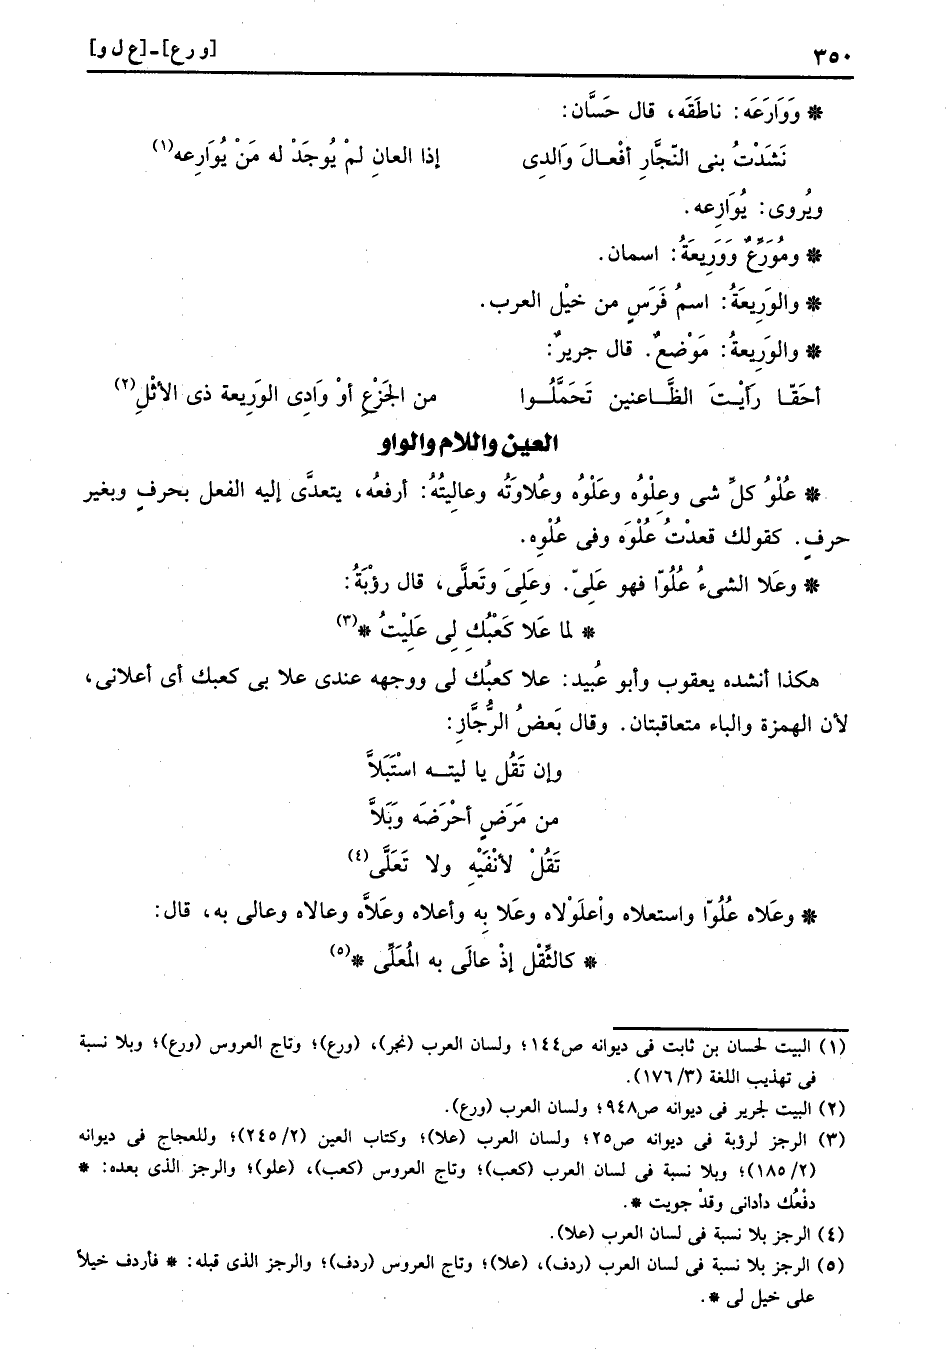 ٣٥٠ [و رع]ـ[ع ل و]
* وَوَارَعَه: ناطَقَه، قال حَسَّان:
نَشَدْتُ بنى النّجَّارِ أفْعـالَ وَالدِى إذا العانِ لمْ يُوجَدْ له مَنْ يُوَارِعه(١)
ويُروى: يُوَازِعه.
* ومُوَرِّعٌ ووَرِيعَةُ: اسمان.
* والوَرِيعَةُ: اسمُ فَرَسٍ من خيْل العرب.
* والوَرِيعةُ: مَوْضعٌ. قال جريرٌ:
أحَقّـا رَأيْـتَ الظَّـاعنين تَحَمَّلُـوا من الجَزْعِ أوْ وَادِى الوَرِيعة ذى الأثْلِ(٢)
العين واللام والواو
* عُلْوُ كلِّ شى وعِلْوُه وعَلْوُه وعُلاوَتُه وعاليتُهُ: أرفعُه، يتعدَّى إليه الفعل بحرفٍ وبغير
حرفٍ. كقولك قعدْتُ عُلْوَه وفى عُلْوِه.
* وعَلا الشىءُ عُلُوّا فهو عَلِىّ. وعَلِىَ وتَعلَّى، قال رؤبَةُ:
* لما عَلا كَعْبُكِ لِى عَلِيْتُ *(٣)
هكذا أنشده يعقوب وأبو عُبيد: علا كعبُك لى ووجهه عندى علا بى كعبك أى أعلانى،
لأن الهمزة والباء متعاقبتان. وقال بَعضُ الرُّجَّازِ:
وإن تَقُل يا ليتـه اسْتَبَلاَّ
من مَرَضٍ أحْرَضَه وَبَلاَّ
تَقُلْ لأنْفَيْهِ ولا تَعَلَّى(٤)
* وعَلاه عُلُوّا واستعلاه واْعلَوْلاه وعَلا بِه وأعلاه وعَلاَّه وعالاه وعالى به، قال:
* كالثِّقْل إذْ عالَى به المُعَلِّى *(٥)
(١) البيت لحسان بن ثابت فى ديوانه ص١٤٤؛ ولسان العرب (نجر)، (ورع)؛ وتاج العروس (ورع)؛ وبلا نسبة
فى تهذيب اللغة (٣/ ١٧٦).
(٢) البيت لجرير فى ديوانه ص٩٤٨؛ ولسان العرب (ورع).
(٣) الرجز لرؤبة فى ديوانه ص٢٥؛ ولسان العرب (علا)؛ وكتاب العين (٢/ ٢٤٥)؛ وللعجاج فى ديوانه
(٢/ ١٨٥)؛ وبلا نسبة فى لسان العرب (كعب)؛ وتاج العروس (كعب)، (علو)؛ والرجز الذى بعده: *
دفْعُك دأدانى وقدْ جويت *.
(٤) الرجز بلا نسبة فى لسان العرب (علا).
(٥) الرجز بلا نسبة فى لسان العرب (ردف)، (علا)؛ وتاج العروس (ردف)؛ والرجز الذى قبله: * فأردف خيلاً
على خيل لى *.